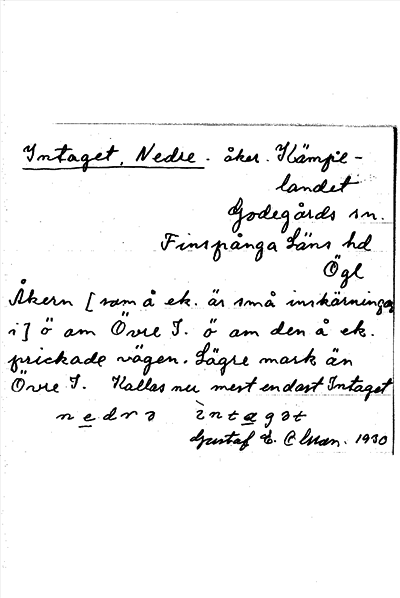 Intaget, Nedre. åker. Kämpe-
landet
Godegårds sn.
Finspånga Läns hd
Ögl
Åkern [som å ek. är små inskärningar
i] ö om Övre I. ö om den å ek.
prickade vägen. Lägre mark än
Övre I. Kallas nu mest endast Intaget
nedrə ìntagət
Gustaf E. 1930